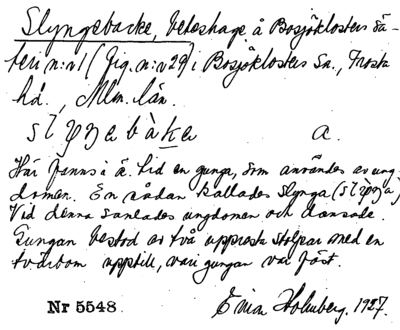 Slyngebacke, beteshage å Bosjöklosters sä-
teri n:o 1 (fig. n:o 29) i Bosjöklosters Sn., Frosta
hd., Mlm. län.
a.
Här fanns i ä. tid en gunga, som användes av ung-
domen. En sådan kallades slynga
Vid denna samlades ungdomen och dansade.
Gungan bestod av två uppresta stolpar med en
tvärbom upptill, vari gungan var fäst.
Nr 5548. Holmberg. 1927.